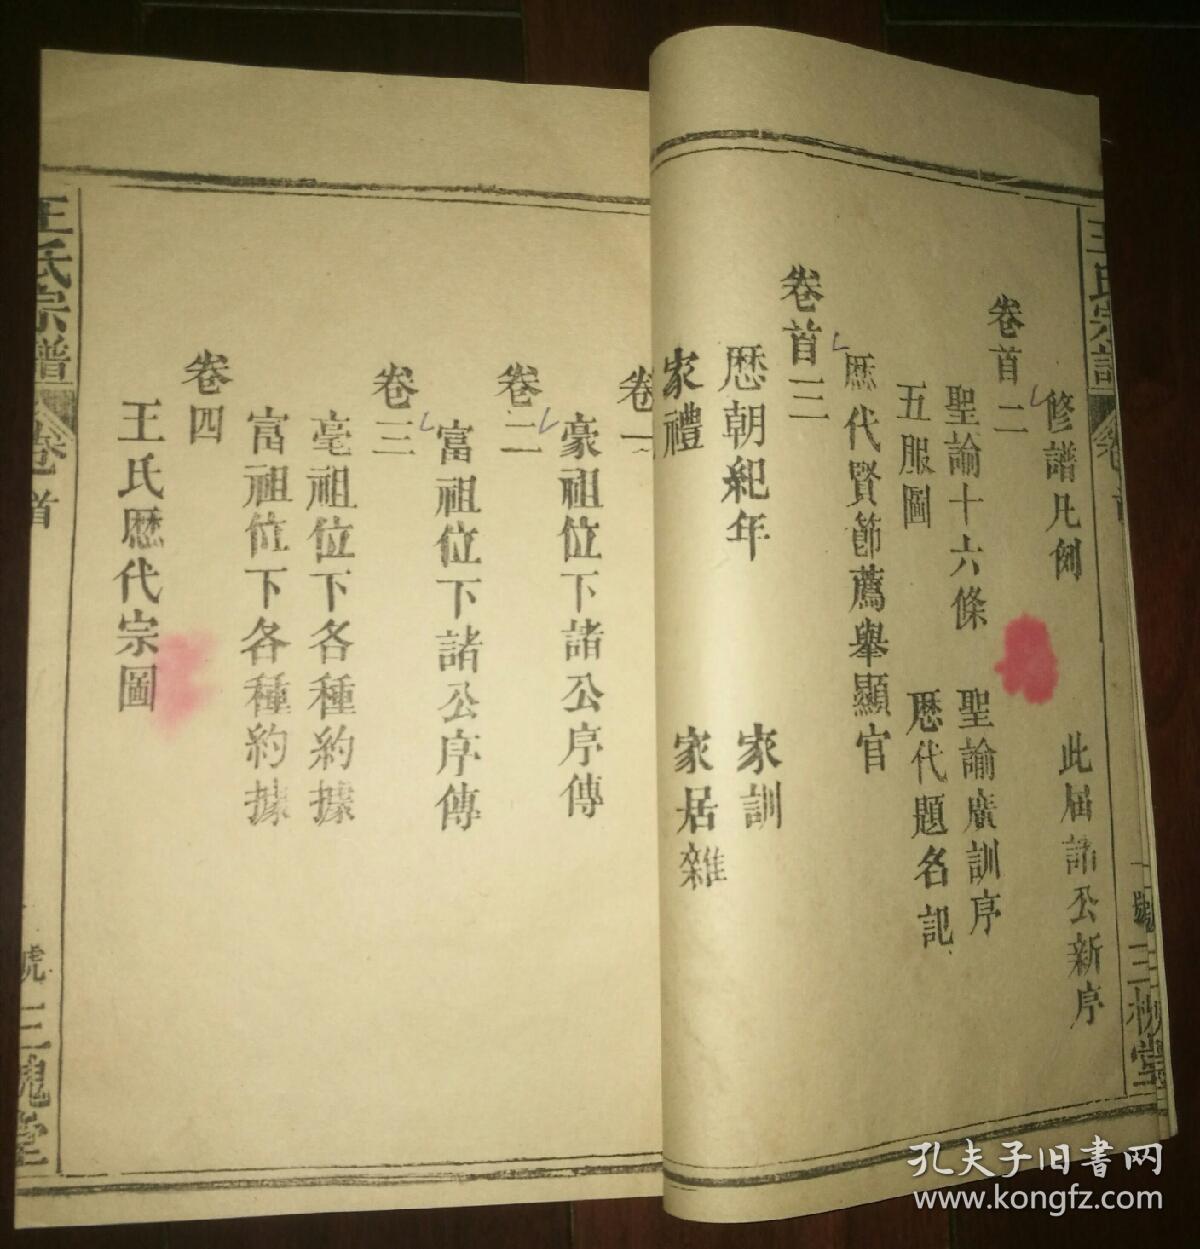 王氏宗譜
修譜凡例 此屆諸公新序
卷首二
聖諭十六條 聖諭廣訓序
五服圖 歷代題名記
歷代賢節薦舉顯官
卷首三
歷朝紀年 家訓
家禮 家居雜
卷一
豪祖位下諸公序傳
卷二
富祖位下諸公序傳
卷三
毫祖位下各種約據
富祖位下各種約據
卷四
王氏歷代宗圖
王氏宗譜 卷首 號 三槐堂
孔夫子旧書网
www.kongfz.com